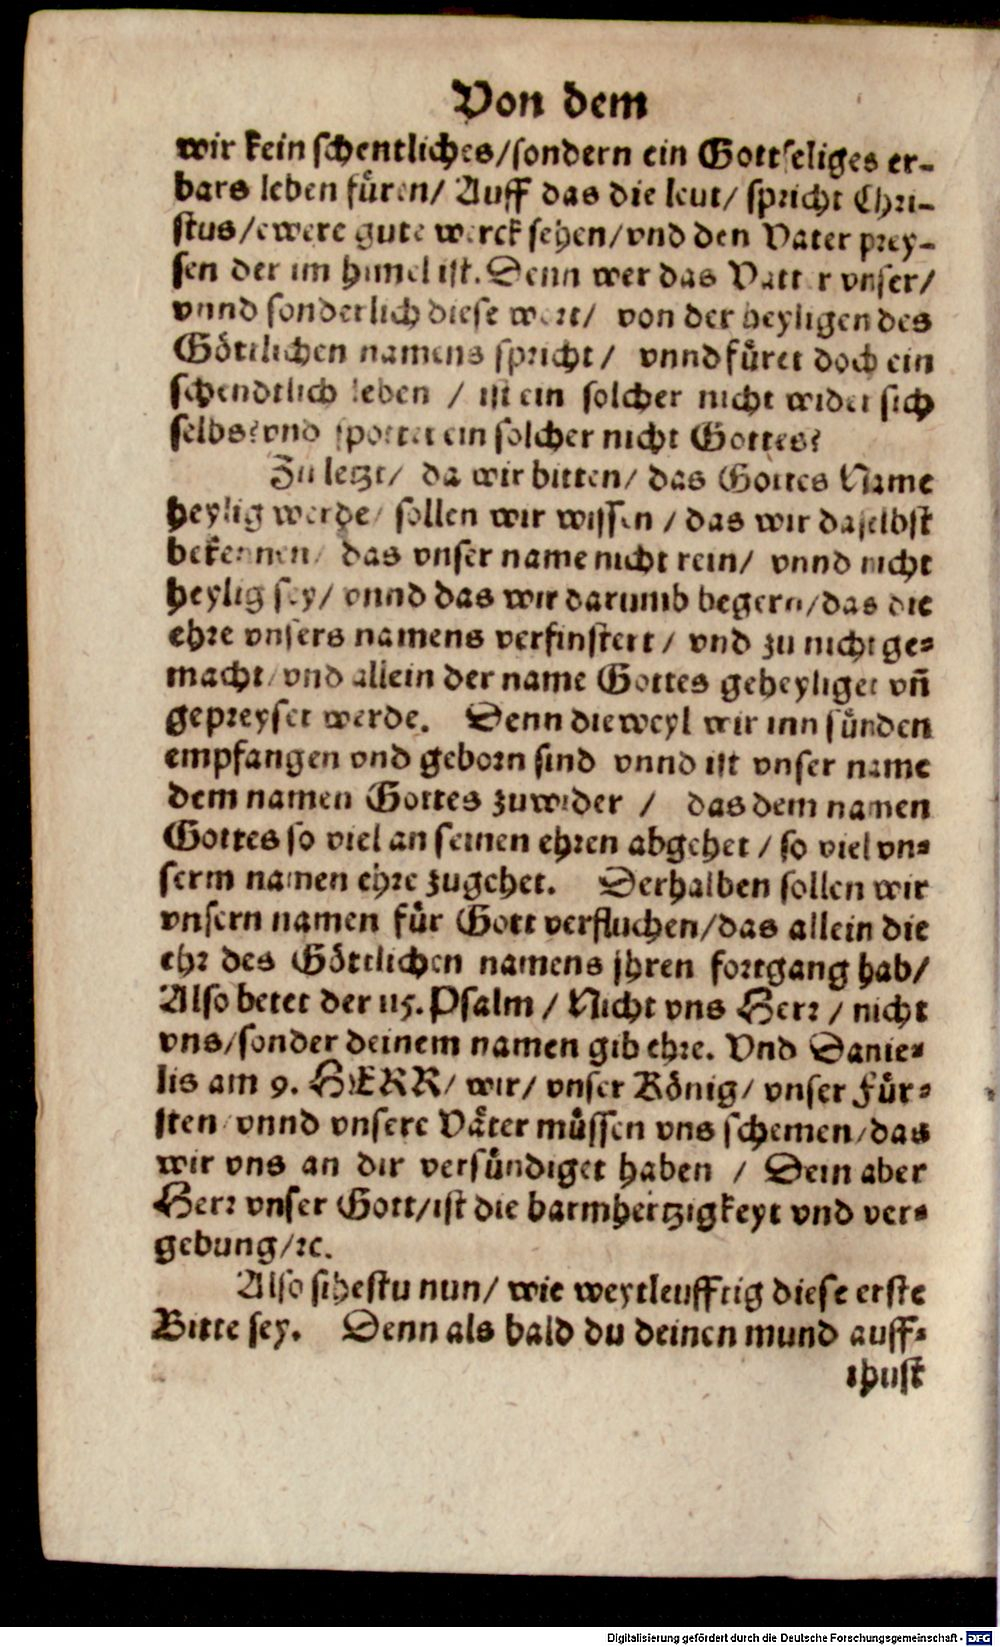 Von dem
wir kein schentliches/sondern ein Gottseliges er-
bars leben füren/ Auff das die leut/ spricht Chri-
stus/ewere gute werck sehen/vnd den Vater prey-
sen der im himel ist. Denn wer das Vatter vnser/
vnnd sonderlich diese wort/ von der heyligen des
Göttlichen namens spricht/ vnnd füret doch ein
schendtlich leben / ist ein solcher nicht wider sich
selbs? vnd spottet ein solcher nicht Gottes?
Zu letzt/ da wir bitten/ das Gottes Name
heylig werde/ sollen wir wissen / das wir daselbst
bekennen/ das vnser name nicht rein/ vnnd nicht
heylig sey/ vnnd das wir darumb begern/das die
ehre vnsers namens verfinstert/ vnd zu nicht ge=
macht/vnd allein der name Gottes geheyliget vñ
gepreyset werde. Denn dieweyl wir inn sünden
empfangen vnd geborn sind vnnd ist vnser name
dem namen Gottes zuwider / das dem namen
Gottes so viel an seinen ehren abgehet / so viel vn=
serm namen ehre zugehet. Derhalben sollen wir
vnsern namen für Gott verfluchen/das allein die
ehr des Göttlichen namens jhren fortgang hab/
Also betet der 115. Psalm / Nicht vns Herr / nicht
vns/sonder deinem namen gib ehre. Vnd Danie=
lis am 9. HERR/ wir/ vnser König/ vnser Für=
sten/vnnd vnsere Väter müssen vns schemen/das
wir vns an dir versündiget haben / Dein aber
Herr vnser Gott/ist die barmhertzigkeyt vnd ver=
gebung/ꝛc.
Also sihestu nun/ wie weytleufftig diese erste
Bitte sey. Denn als bald du deinen mund auff=
thust
Digitalisierung gefördert durch die Deutsche Forschungsgemeinschaft - DFG